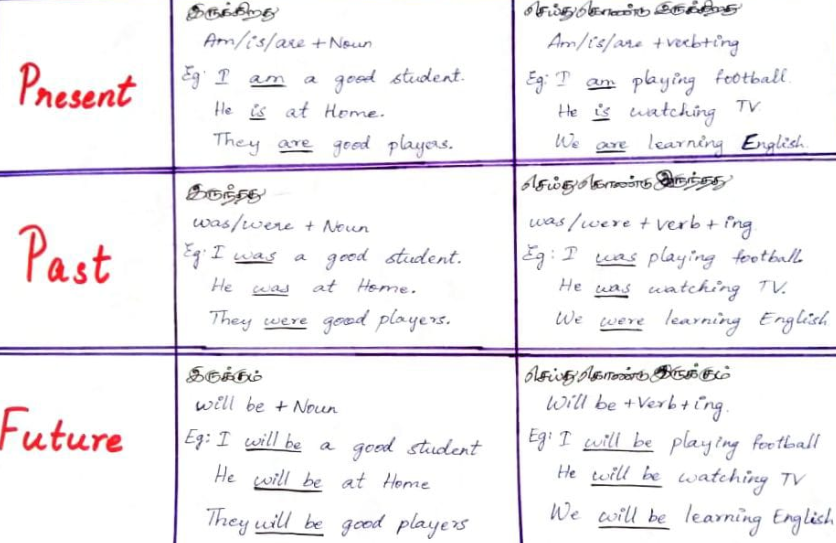 Present
இருக்கிறது
Am/is/are + Noun
Eg: I am a good student.
He is at Home.
They are good players.
செய்துகொண்டு இருக்கிறது
Am/is/are +verb+ing
Eg: I am playing football.
He is watching TV.
We are learning English.
Past
இருந்தது
was/were + Noun
Eg: I was a good student.
He was at Home.
They were good players.
செய்துகொண்டு இருந்தது
was/were + verb + ing.
Eg: I was playing football.
He was watching TV.
We were learning English
Future
இருக்கும்
will be + Noun
Eg: I will be a good student
He will be at Home
They will be good players
செய்துகொண்டு இருக்கும்
Will be +Verb+ing.
Eg: I will be playing football
He will be watching TV
We will be learning English